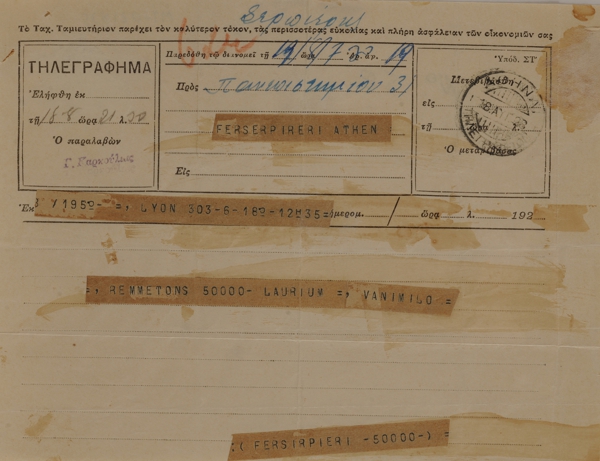 Σερπιέρης
Τὸ Ταχ. Ταμιευτήριον παρέχει τὸν καλύτερον τόκον, τὰς περισσοτέρας εὐκολίας καὶ πλήρη ἀσφάλειαν τῶν οἰκονομιῶν σας
ΤΗΛΕΓΡΑΦΗΜΑ
Ἐλήφθη ἐκ
τῇ 18-8 ὥρᾳ 21 λ. 20
Ὁ παραλαβὼν
Παρεδόθη τῷ διανομεῖ τῇ 19/8/ ὥρ. ἀρ. 19
Πρὸς Πανεπιστημίου 31
FERSERPIRERI ATHEN
Εἰς
Ὑπόδ. ΣΤ΄
Μετεβιβάσθη
εἰς
τῇ ὥρᾳ λ.
Ὁ μεταβιβάσας
Ἐκ Y1959- =, LYON 303-6-189-12H35= ἡμερομ. / ὥρᾳ λ. 192
=, REMMETONS 50000- LAURIUM =, VANIMILO =
:( FERSIRPIERI -50000-) =